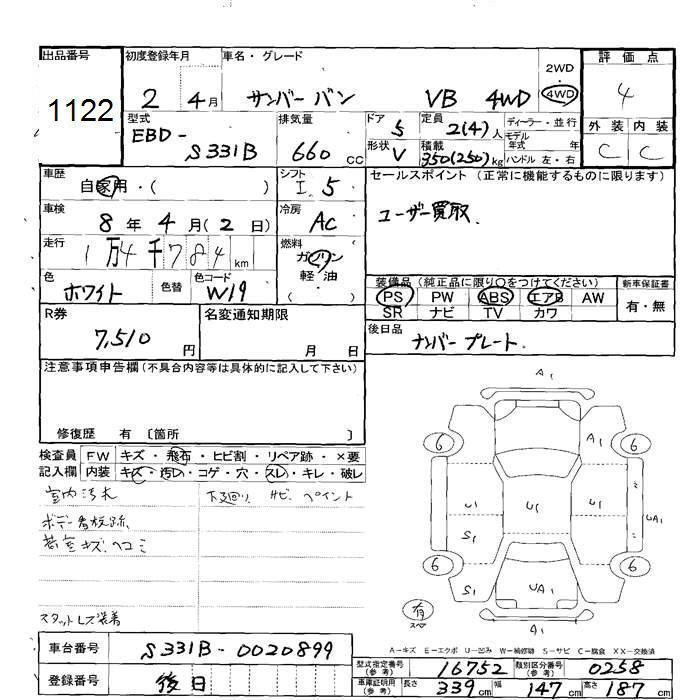 出品番号 初度登録年月 車名・グレード 2WD 評価点
1122 2 4月 サンバー バン VB 4WD 4WD 4
型式 排気量 ドア 定員 ディーラー・並行 外装 内装
EBD-S331B 660cc 5 2(4)人 モデル年式 年 C C
形状 V 積載 350(250)kg ハンドル 左・右
車歴 シフト セールスポイント (正常に機能するものに限ります)
自家用・( ) I 5
車検 冷房 ユーザー買取.
8年 4月(2日) AC
走行 燃料
1万4千784km ガソリン
軽油
( )
色 色替 色コード 装備品(純正品に限り○をつけてください) 新車保証書
ホワイト W19 PS PW ABS エアB AW 有・無
SR ナビ TV カワ
R券 名変通知期限 後日品
7,510円 月 日 ナンバープレート.
注意事項申告欄(不具合内容等は具体的に記入して下さい)
修復歴 有 〔箇所 〕
検査員 FW キズ・飛石・ヒビ割・リペア跡・×要
記入欄 内装 キズ・汚レ・コゲ・穴・スレ・キレ・破レ
室内汚れ 下廻り サビ ペイント
ボデー看板跡
荷室キズ、ヘコミ
スタットレス装着
A1
6 A1 6
U1 U1 U1 UA1
S1
6 S1 UA1 6
有
スペア A1
A-キズ E-エクボ U-凹み W-補修跡 S-サビ C-腐食 XX-交換済
車台番号 S331B-0020899
型式指定番号(参考) 16752 類別区分番号(参考) 0258
登録番号 後日
車庫証明用(参考) 長さ 339cm 幅 147cm 高さ 187cm